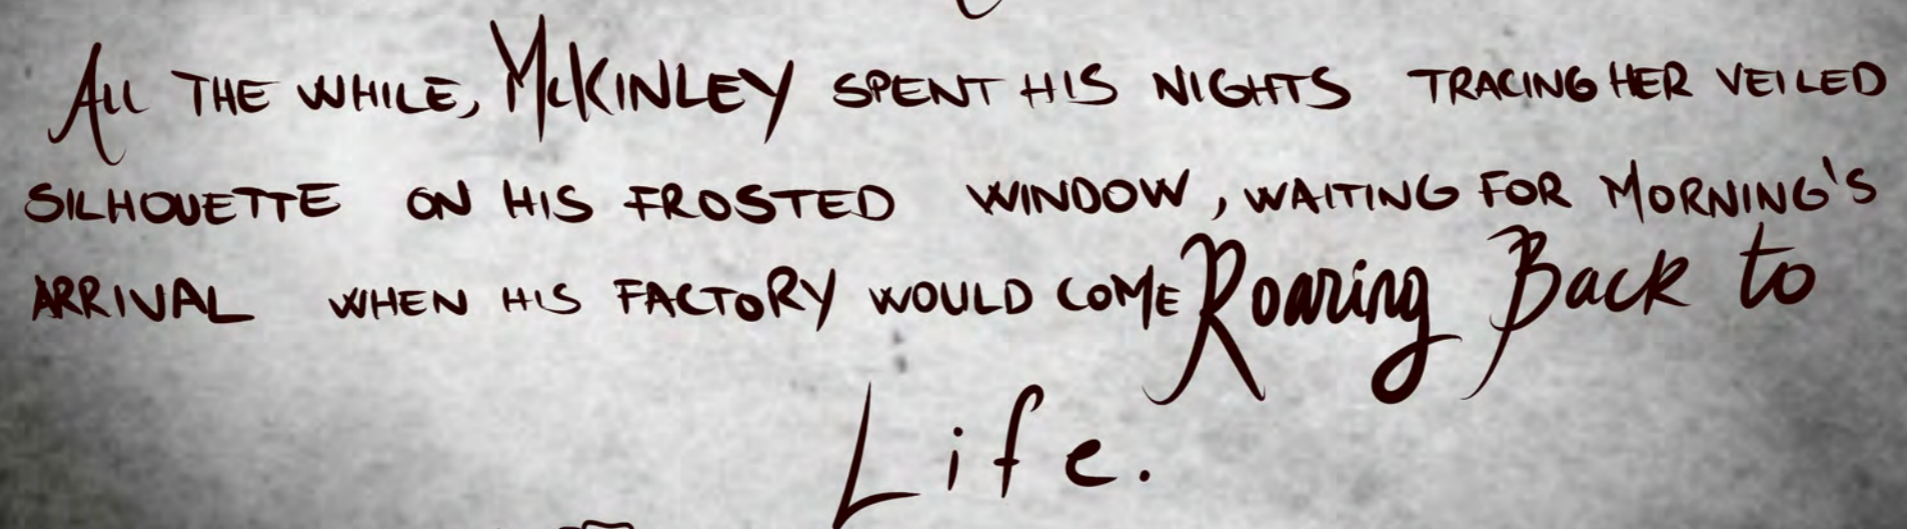 All THE WHILE, McKINLEY SPENT HIS NIGHTS TRACING HER VEILED
SILHOUETTE ON HIS FROSTED WINDOW, WAITING FOR MORNING'S
ARRIVAL WHEN HIS FACTORY WOULD COME Roaring Back to
Life.